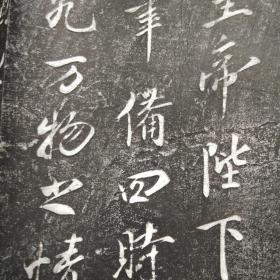 皇帝陛下
年備四時
究万物之情